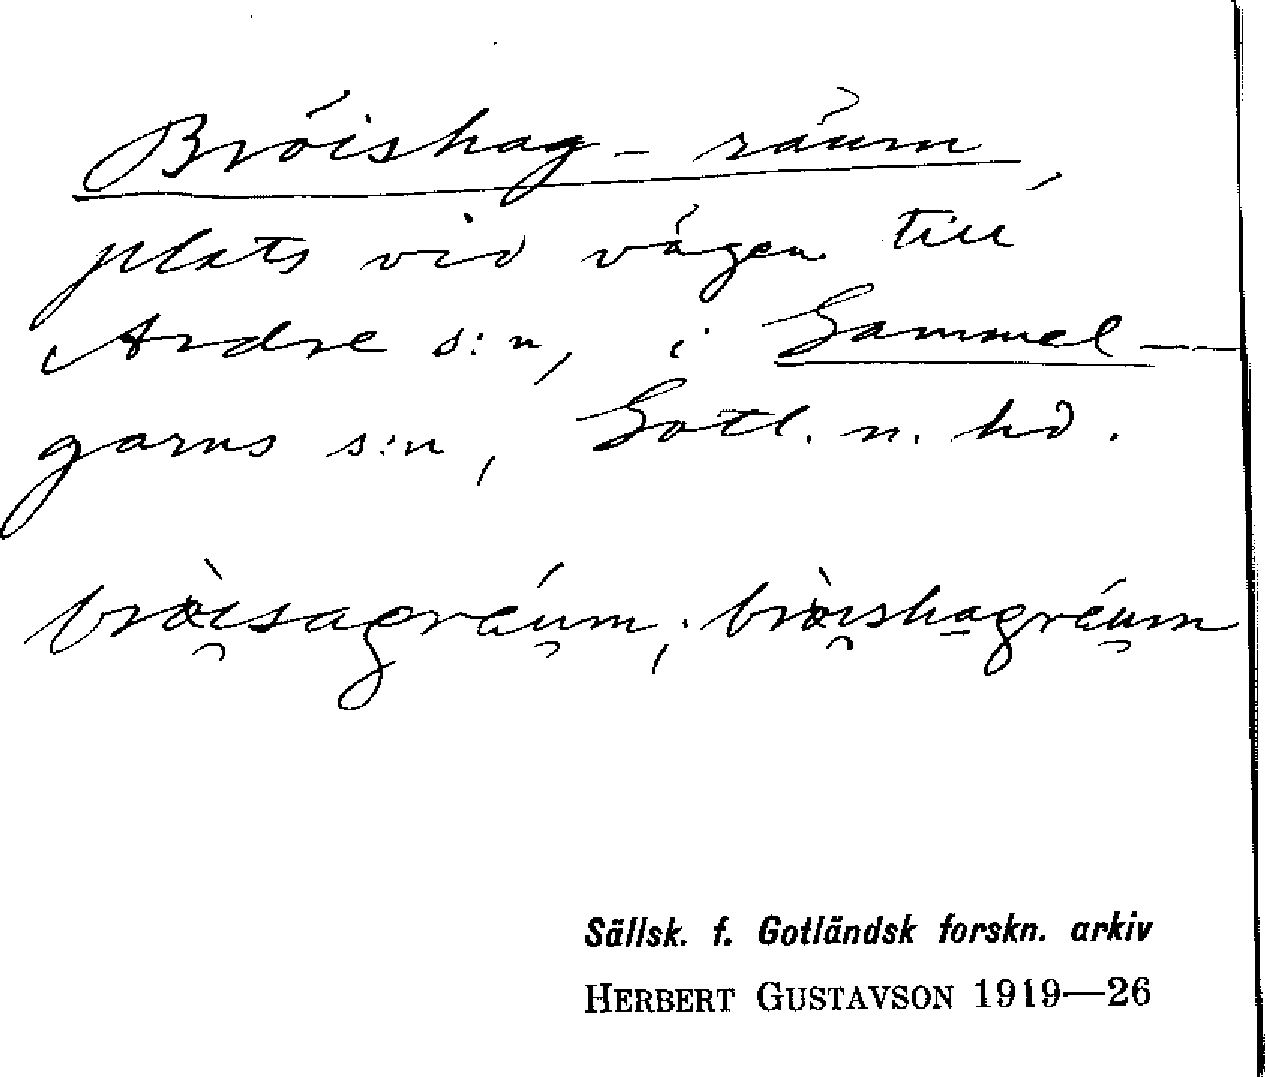 Bróishag-räum,
plats vid vägen till
Ardre s:n, i Gammel-
garns s:n, Gotl. n. hd.
bròisagräúm; bròishagräúm
Sällsk. f. Gotländsk forskn. arkiv
HERBERT GUSTAVSON 1919—26